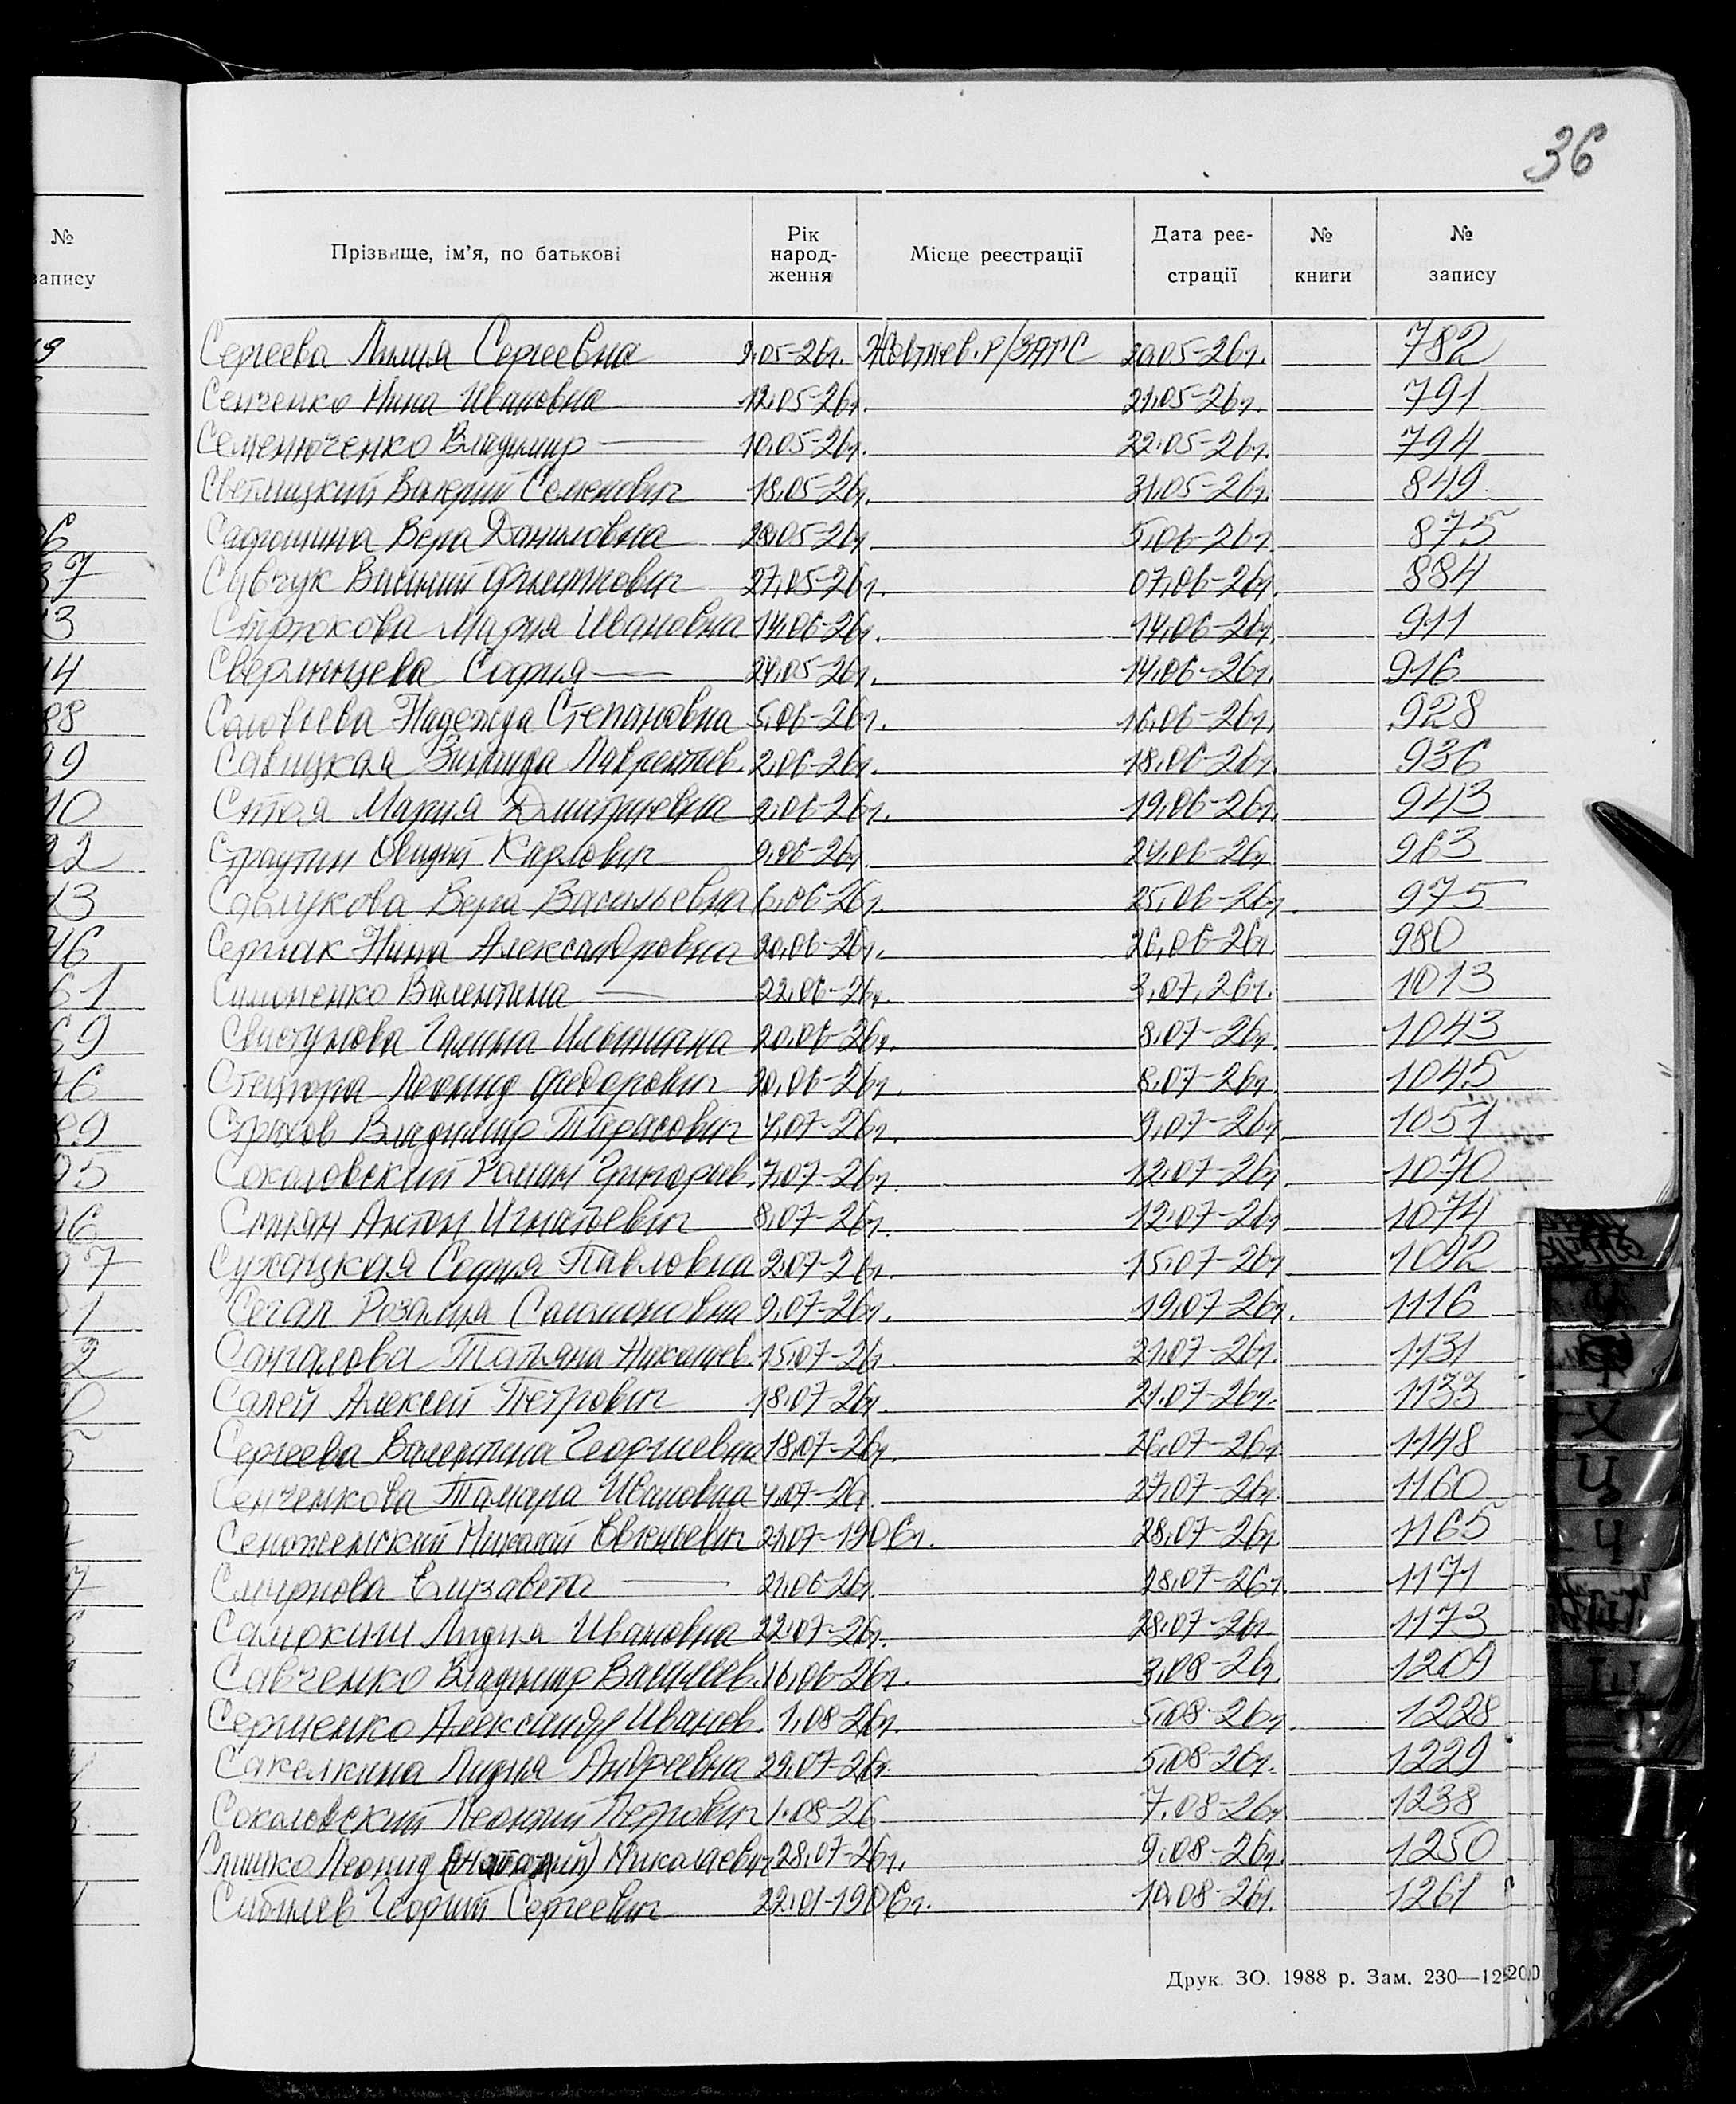 36
№ запису
Прізвище, ім'я, по батькові Рік народження Місце реєстрації Дата реєстрації № книги № запису
Сергеева Лилия Сергеевна 9.05-26г. Жовтнев. р/ЗАГС 20.05-26г. 782
Сенченко Нина Ивановна 12.05-26г. 21.05-26г. 791
Семенюченко Владимир — 10.05-26г. 22.05-26г. 794
Светлицкий Валерий Семенович 18.05-26г. 31.05-26г. 849
Вера Даниловна 28.05-26г 5.06-26г 875
Савчук Василий Филиппович 27.05-26г. 07.06-26г. 884
Мария Ивановна 14.06-26г. 14.06-26г. 911
София — 24.05-26г. 14.06-26г. 916
Соловьева Надежда Степановна 5.06-26г. 16.06-26г. 928
Савицкая Зинаида Лаврентьев. 2.06-26г. 18.06-26г. 936
Мария Дмитриевна 2.06-26г. 19.06-26г. 943
Страутин Овидий Карлович 9.06-26г. 24.06-26г 963
Савлукова Вера Васильевна 6.06-26г. 25.06-26г. 975
Нина Александровна 20.06-26г. 26.06-26г. 980
Симоненко Валентина — 22.06-26г. 3.07.26г. 1013
Свистунова Галина Ильинична 20.06-26г. 8.07-26г. 1043
Леонид Федорович 20.06-26г. 8.07-26г. 1045
Страхов Владимир Тарасович 4.07-26г. 9.07-26г. 1051
Соколовский Роман Григорьев. 7.07-26г. 12.07-26г. 1070
Антон Игнатьевич 8.07-26г. 12.07-26г 1074
Сухацкая София Павловна 2.07-26г. 15.07-26г 1092
Сегал Розалия Соломоновна 9.07-26г. 19.07-26г. 1116
Сангалова Татьяна Николаев. 15.07-26г. 21.07-26г. 1131
Салей Алексей Петрович 18.07-26г. 21.07-26г. 1133
Сергеева Валентина Георгиевна 18.07-26г. 26.07-26г 1148
Сенченкова Тамара Ивановна 4.07-26г. 27.07-26г. 1160
Николай Евгеньевич 21.07-1906г. 28.07-26г. 1165
Смирнова Елизавета — 21.06-26г. 28.07-26г. 1171
Лидия Ивановна 22.07-26г. 28.07-26г. 1173
Савченко Владимир Васильев. 16.06-26г. 3.08-26г. 1209
Сергиенко Александр Иванов. 1.08-26г. 5.08-26г. 1228
Сакелкина Лидия Андреевна 29.07-26г. 5.08-26г. 1229
Соколовский Леонтий Петрович 1.08-26 7.08-26г 1238
Слишко Леонид (Анатолий) Николаевич 28.07-26г. 9.08-26г. 1250
Сибилев Георгий Сергеевич 22.01-1906г. 10.08-26г. 1261
Друк. ЗО. 1988 р. Зам. 230—12
Х
Ц
Ч